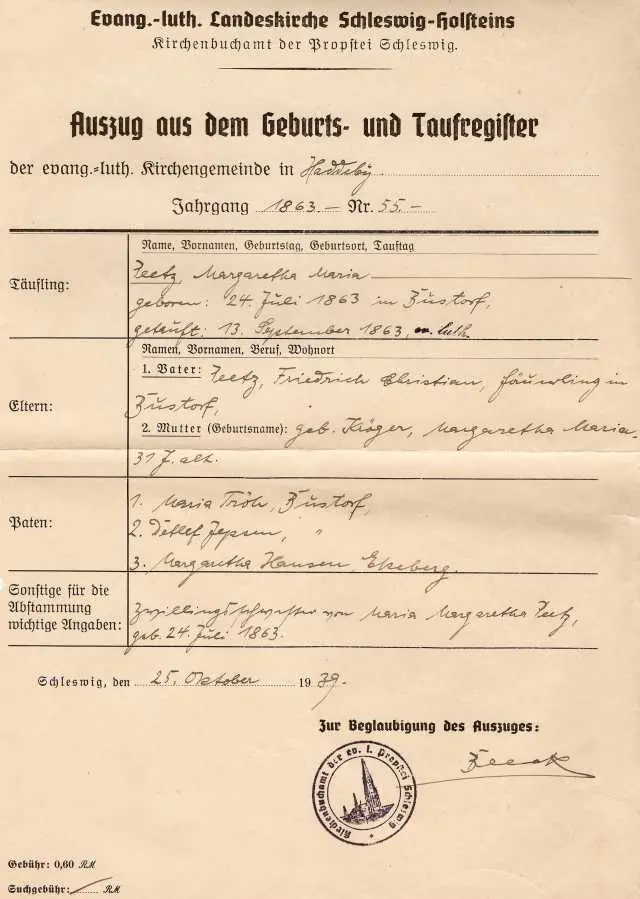 Evang.-luth. Landeskirche Schleswig-Holsteins
Kirchenbuchamt der Propstei Schleswig.
Auszug aus dem Geburts- und Taufregister
der evang.-luth. Kirchengemeinde in Haddeby
Jahrgang 1863.— Nr. 55.—
Name, Vornamen, Geburtstag, Geburtsort, Tauftag
Täufling:
Zeetz, Margaretha Maria
geboren: 24. Juli 1863 in Bustorf,
getauft: 13. September 1863, ev. luth.
Namen, Vornamen, Beruf, Wohnort
Eltern:
1. Vater: Zeetz, Friedrich Christian, in
Bustorf,
2. Mutter (Geburtsname): geb. Kröger, Margaretha Maria.
31 J. alt.
Paten:
1. Maria Tröh, Bustorf,
2. Detlef Jepsen, "
3. Margaretha Hansen, Ekeberg.
Sonstige für die
Abstammung
wichtige Angaben:
Zwillingsschwester von Maria Margaretha Zeetz,
geb. 24. Juli 1863.
Schleswig, den 25. Oktober 1939.
Zur Beglaubigung des Auszuges:
Kirchenbuchamt der ev. l. Propstei Schleswig
Gebühr: 0,60 RM
Suchgebühr: RM